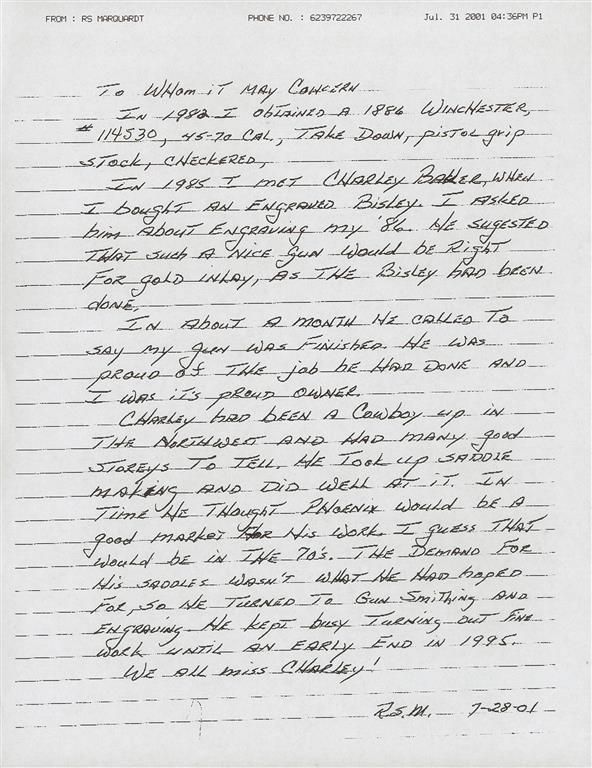 FROM : RS MARQUARDT PHONE NO. : 6239722267 Jul. 31 2001 04:36PM P1
To WHom iT MAY CoNCERN
IN 1982 I obTAiNED A 1886 WiNCHESTER,
# 114530, 45-70 CAL, TAKE DowN, pistol grip
STock, CHECKERED,
IN 1985 I MET CHARLEY, WHEN
I bougHT AN ENgRAVED BislEy. I ASKED
him AbouT ENgRAViNg my '86. HE SugESTED
THAT SucH A NicE guN Would bE RigHT
FoR gold iNlAy, AS THE BislEy HAD bEEN
doNE.
IN AbouT A moNTH HE cAllED To
SAy my guN WAS FiNisHED. HE WAS
pRoud of THE job HE HAD DoNE AND
I WAS iT's pRoud owNER.
CHARLEY HAD bEEN A Cowboy up iN
THE NoRTHWEST AND HAD mANy good
SToREyS To TEll. HE Took up SADDlE
mAkiNg AND DiD WEll AT iT. IN
TimE HE THougHT PHoENix Would bE A
good mARkET FoR His WoRk. I guESS THAT
Would bE iN THE 70's. THE DEmAND FoR
His SADDlES WASN'T WHAT HE HAD hopED
FoR, So HE TuRNED To GuN SmiTHiNg AND
ENgRAViNg. HE KEpT busy TuRNiNg ouT FiNE
WoRk uNTil AN EARly END iN 1995.
WE All miss CHARlEy!
R.S.M. 7-28-01